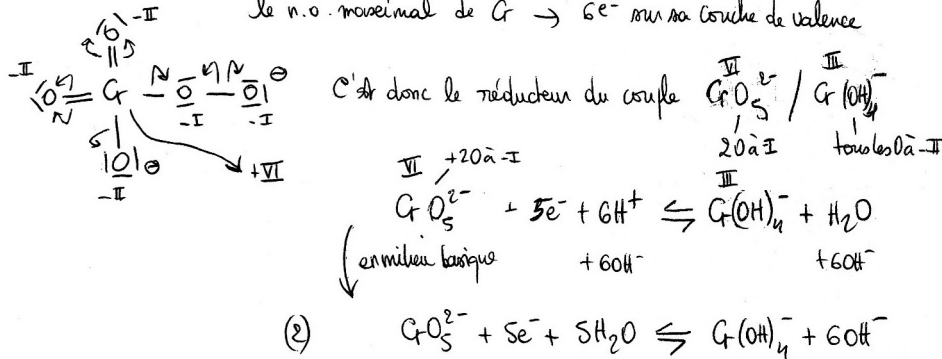 le n.o. maximal de Cr → 6e⁻ sur sa couche de valence
-II
|O|
-II |O = Cr - O - O| ⊖
-I -I
|O| ⊖
-II
+VI
C'est donc le réducteur du couple CrO₅²⁻ / Cr(OH)₄⁻
VI III
2O à -I tous les O à -II
VI +2O à -I III
CrO₅²⁻ + 5e⁻ + 6H⁺ ⇌ Cr(OH)₄⁻ + H₂O
en milieu basique +6OH⁻ +6OH⁻
(2) CrO₅²⁻ + 5e⁻ + 5H₂O ⇌ Cr(OH)₄⁻ + 6OH⁻